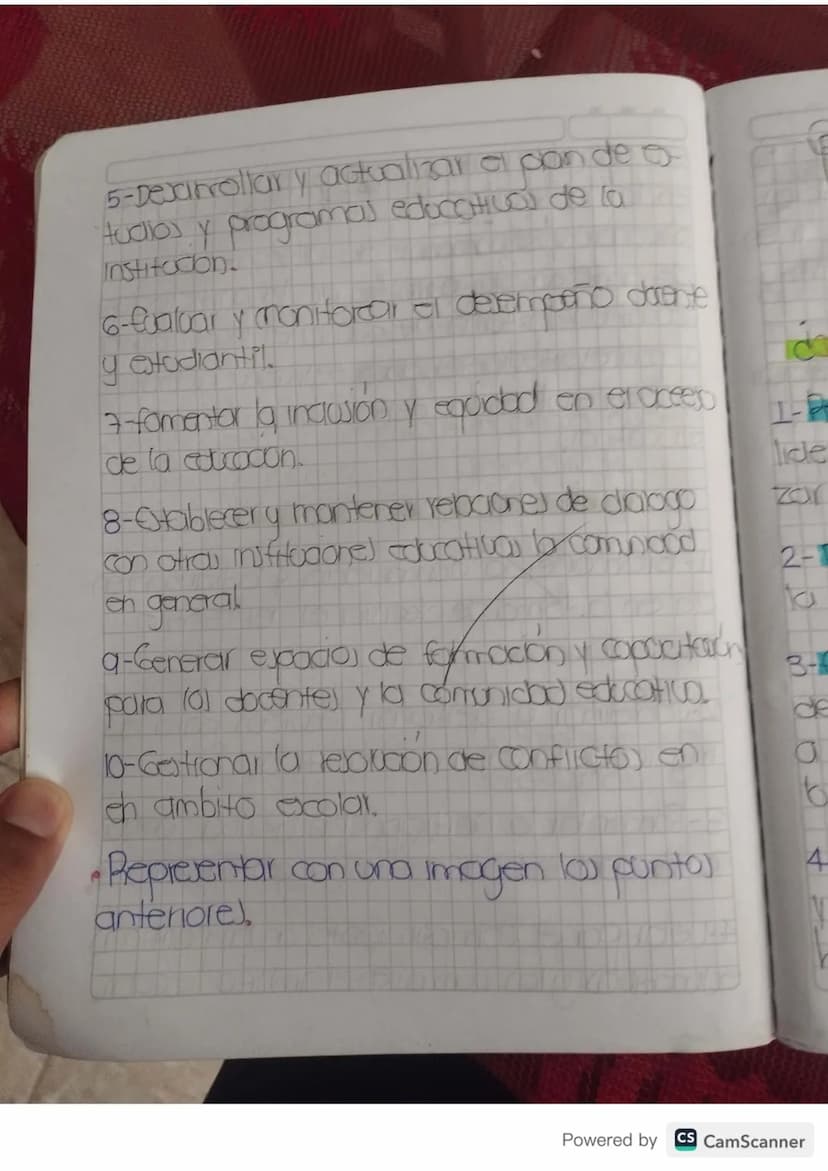 5-Desarrollar y actualizar el plan de es-
tudios y programas educativos de la
institución.
6-Evaluar y monitorear el desempeño docente
y estudiantil.
7-fomentar la inclusión y equidad en el acceso
de la educación.
8-Establecer y mantener relaciones de dialogo
con otras instituciones educativas la comunidad
en general
9-Generar espacios de formación y capacitación
para los docentes y la comunidad educativa.
10-Gestionar la resolución de conflictos en
eh ambito escolar.
• Representar con una imagen los puntos
anteriores.
1-
lide
zar
2-
la
3-
de
a
4
y
Powered by CS CamScanner